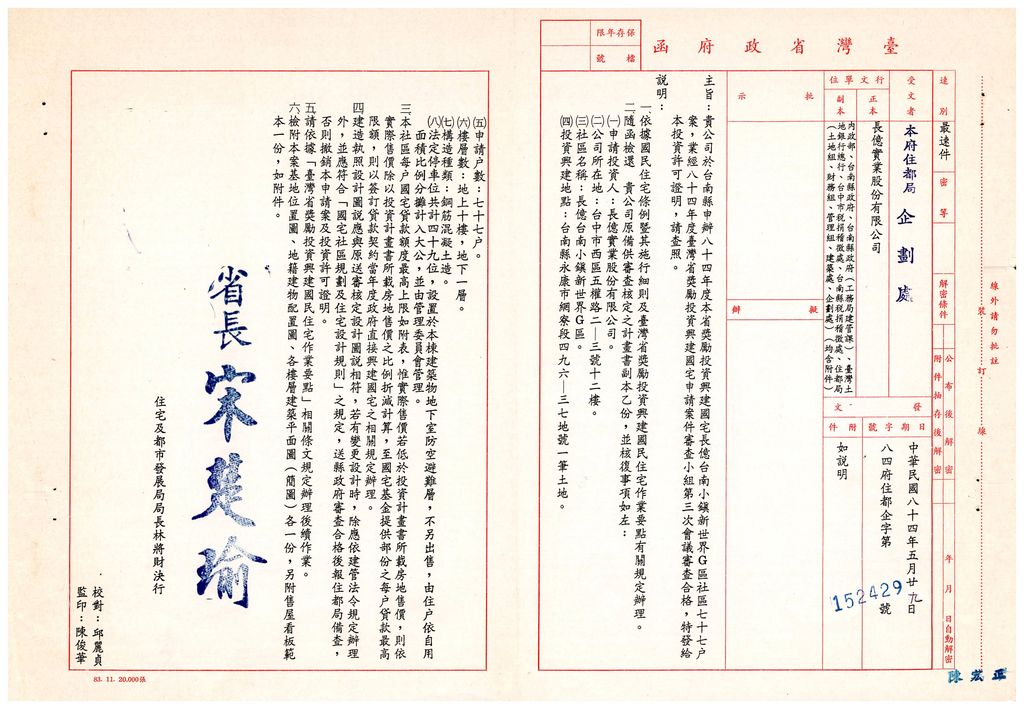 保存年限
檔號
臺灣省政府函
速別
最速件
密等
解密條件
公布後解密
附件抽存後解密
年月日自動解密
受文者
本府住都局 企劃處
行文單位
正本
長億實業股份有限公司
副本
內政部、台南縣政府、台南縣政府(工務局建管課)、臺灣土
地銀行總行、台中市稅捐稽徵處、台南縣稅捐稽徵處、住都局
(土地組、財務組、管理組、建築處、企劃處)(均含附件)
發文
日期
中華民國八十四年五月廿九日
字號
八四府住都企字第152429號
附件
如說明
批示
擬辦
主旨:貴公司於台南縣申辦八十四年度本省獎勵投資興建國宅長億台南小鎮新世界G區社區七十七戶
案,業經八十四年度臺灣省獎勵投資興建國宅申請案件審查小組第三次會議審查合格,特發給
本投資許可證明,請查照。
說明:
一、依據國民住宅條例暨其施行細則及臺灣省獎勵投資興建國民住宅作業要點有關規定辦理。
二、隨函檢還 貴公司原備供審查核定之計畫書副本乙份,並核復事項如左:
㈠申請投資人:長億實業股份有限公司。
㈡公司所在地:台中市西區五權路二—三號十二樓。
㈢社區名稱:長億台南小鎮新世界G區。
㈣投資興建地點:台南縣永康市網寮段四九六—三七地號一筆土地。
㈤申請戶數:七十七戶。
㈥樓層數:地上十樓,地下一層。
㈦構造種類:鋼筋混凝土造。
㈧法定停車位共計四十九位,設置於本棟建築物地下室防空避難層,不另出售,由住戶依自用
面積比例分攤計入大公,並由管理委員會管理。
三、本社區每戶國宅貸款額度最高上限如附表,惟實際售價若低於投資計畫書所載房地售價,則依
實際售價除以投資計畫書所載房地售價之比例折減計算,至國宅基金提供部份之每戶貸款最高
限額,則以簽訂貸款契約當年度政府直接興建國宅之相關規定辦理。
四、建造執照設計圖說應與原送審核定設計圖說相符,若有變更設計時,除應依建管法令規定辦理
外,並應符合「國宅社區規劃及住宅設計規則」之規定,送縣政府審查合格後報住都局備查,
否則撤銷本申請案及投資許可證明。
五、請依據「臺灣省獎勵投資興建國民住宅作業要點」相關條文規定辦理後續作業。
六、檢附本案基地位置圖、地籍建物配置圖、各樓層建築平面圖(簡圖)各一份,另附售屋看板範
本一份,如附件。
省長 宋楚瑜
住宅及都市發展局局長林將財決行
校對:邱麗貞
監印:陳俊華
83. 11. 20,000張
裝訂線
線外請勿批註
陳宏正